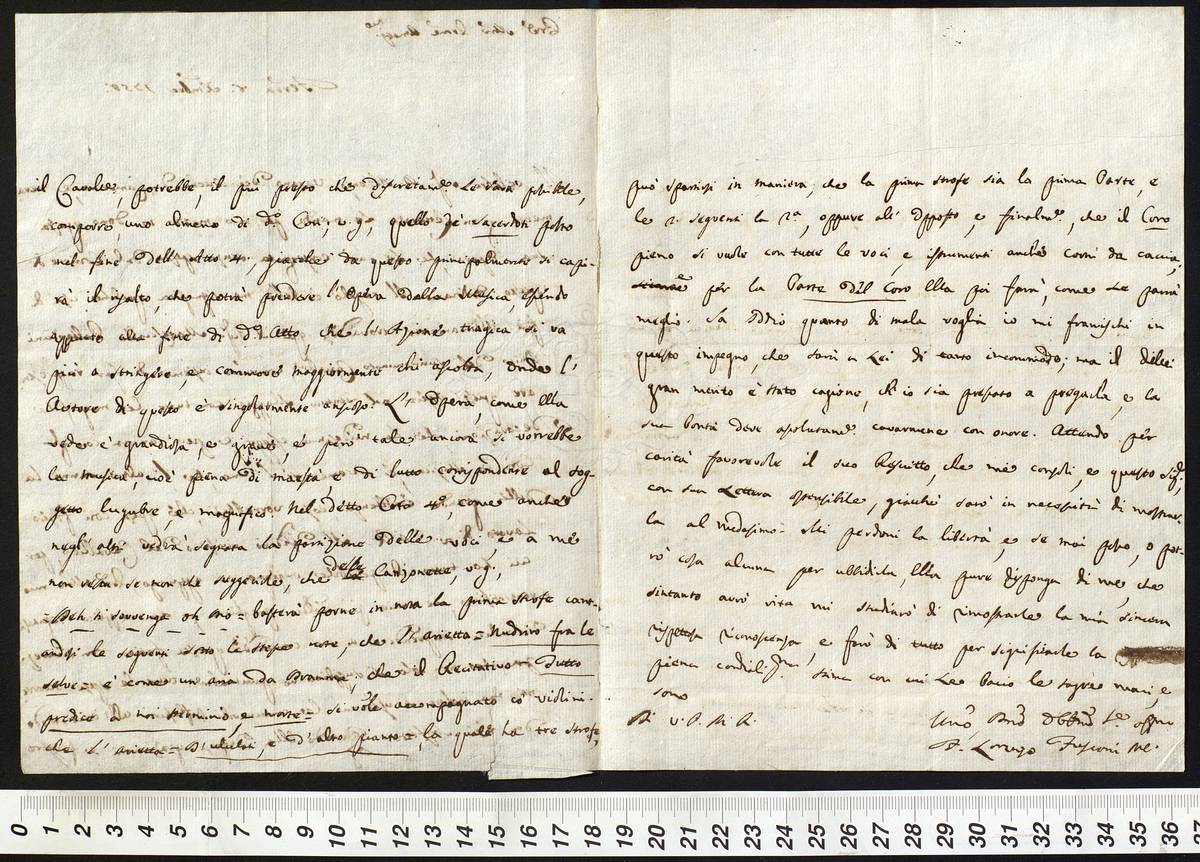 il Cavalre, potrebbe, il più presto che discretamte le sarà possibile,
comporre, uno almeno di di Cori, v. g., quello de' Sacerdoti posto
nel fine dell'Atto 4., giacchè da questo principalmente si capi-
rà il risalto, che potrà prendere l'Opera dalla Musica, essendo
appunto alla fine di do Atto, che l'Azione tragica si va
più a stringere, e commuove maggiormente chi ascolta, onde l'
Autore di questo è singolarmente ansioso. L'Opera, come Ella
vede è grandiosa, e grave, e però tale ancora si vorrebbe
la musica, cioè piena di maestà, e di tutto corrispondente al sog-
getto lugubre, e magnifico. Nel detto Coro 4o, come anche
negl'altri vedrà segnata la partizione delle voci, e a me
non resta se non che suggerirle, che delle Canzonette, v. g.,
= Deh ti sovvenga oh Dio = basterà porne in nota la prima strofe cant-
andosi le seguenti sotto le stesse note, che l'arietta = Nudrivo fra le
selve = è come un aria da Dramma, che il Recitativo = Tutto
predice a noi sterminio, e morte = si vole accompagnato co' violini
che l'arietta = D'ululati, e d'alto pianto =, la quale ha tre strofe,
può spartirsi in maniera, che la prima strofe sia la prima Parte, e
le 2. seguenti la 2a, oppure all'opposto, e finalme, che il Coro
pieno si vuole con tutte le voci, e istrumenti anche corni da caccia,
per la Parte del Coro Ella poi farà, come le parrà
meglio. Sa Iddio quanto di mala voglia io mi framischi in
questo impegno, che sarà a Lei di tanto incommodo; ma il di lei
gran merito è stato cagione, ch'io sia pressato a pregarla, e la
sua bontà deve assolutamte cavarmene con onore. Attendo per
carità favorevole il suo Riscritto, che me consoli, e questo Sigr
con sua Lettera ostensibile, giacchè sarò in necessità di mostrar-
la al medesimo. Mi perdoni la libertà, e se mai posso, o pot-
rò cosa alcuna per ubbidirla, Ella pure disponga di me, che
sintanto avrò vita mi studierò di dimostrarle la mia sincera
rispettosa riconoscenza, e farò di tutto per significarle la
piena cordialissma stima con cui Le bacio le sagre mani, e
sono
Di V. P. M. R.
Umo Dmo Obbmo Se Affmo
F. Lorenzo Fusconi